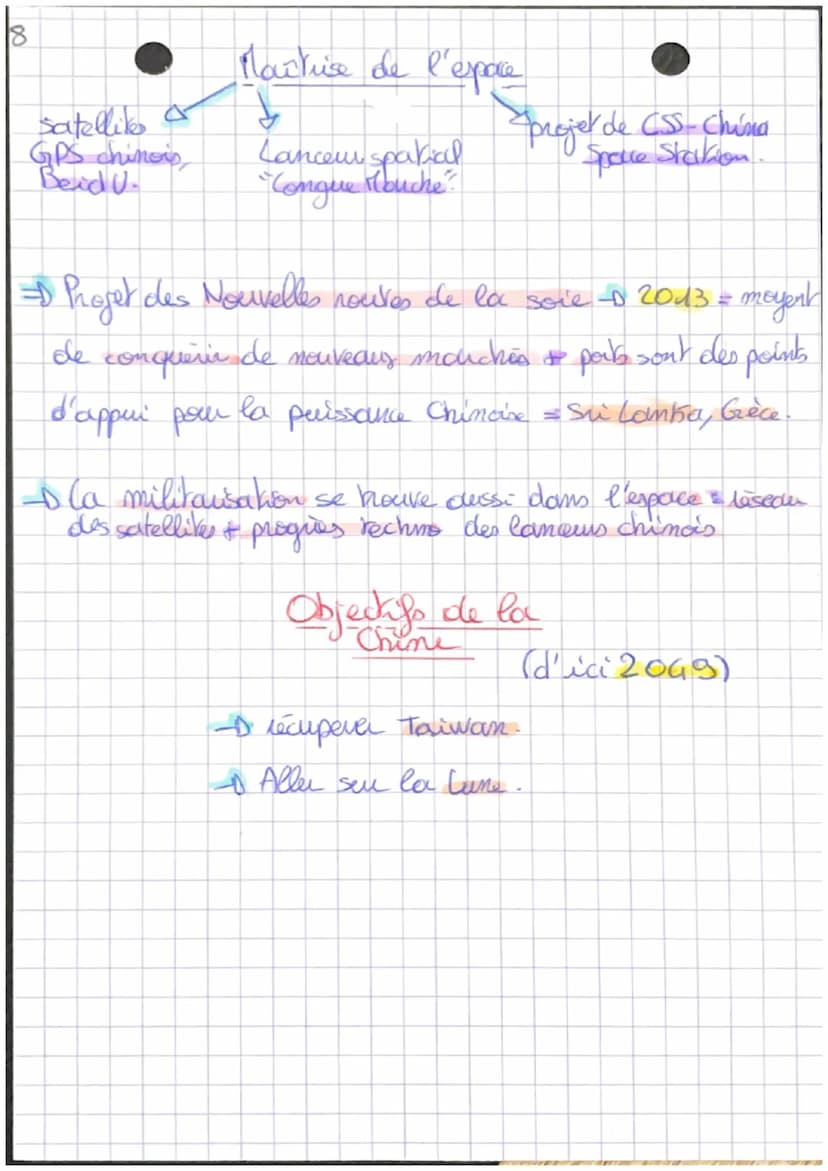 8
Maîtrise de l'espace
satellites
GPS chinois,
BeidU.
Lanceur spatial
"Longue Mouche".
projet de CSS - China
Space Station.
⇒ Projet des Nouvelles routes de la soie → 2013 = moyent
de conquérir de nouveaux marchés + ports sont des points
d'appui pour la puissance Chinoise = Sri Lanka, Grèce.
→ La militarisation se trouve aussi dans l'espace = réseau
des satellites + progrès techno des lanceurs chinois
Objectifs de la
Chine
(d'ici 2049)
→ récuperer Taiwan.
→ Aller sur la Lune.